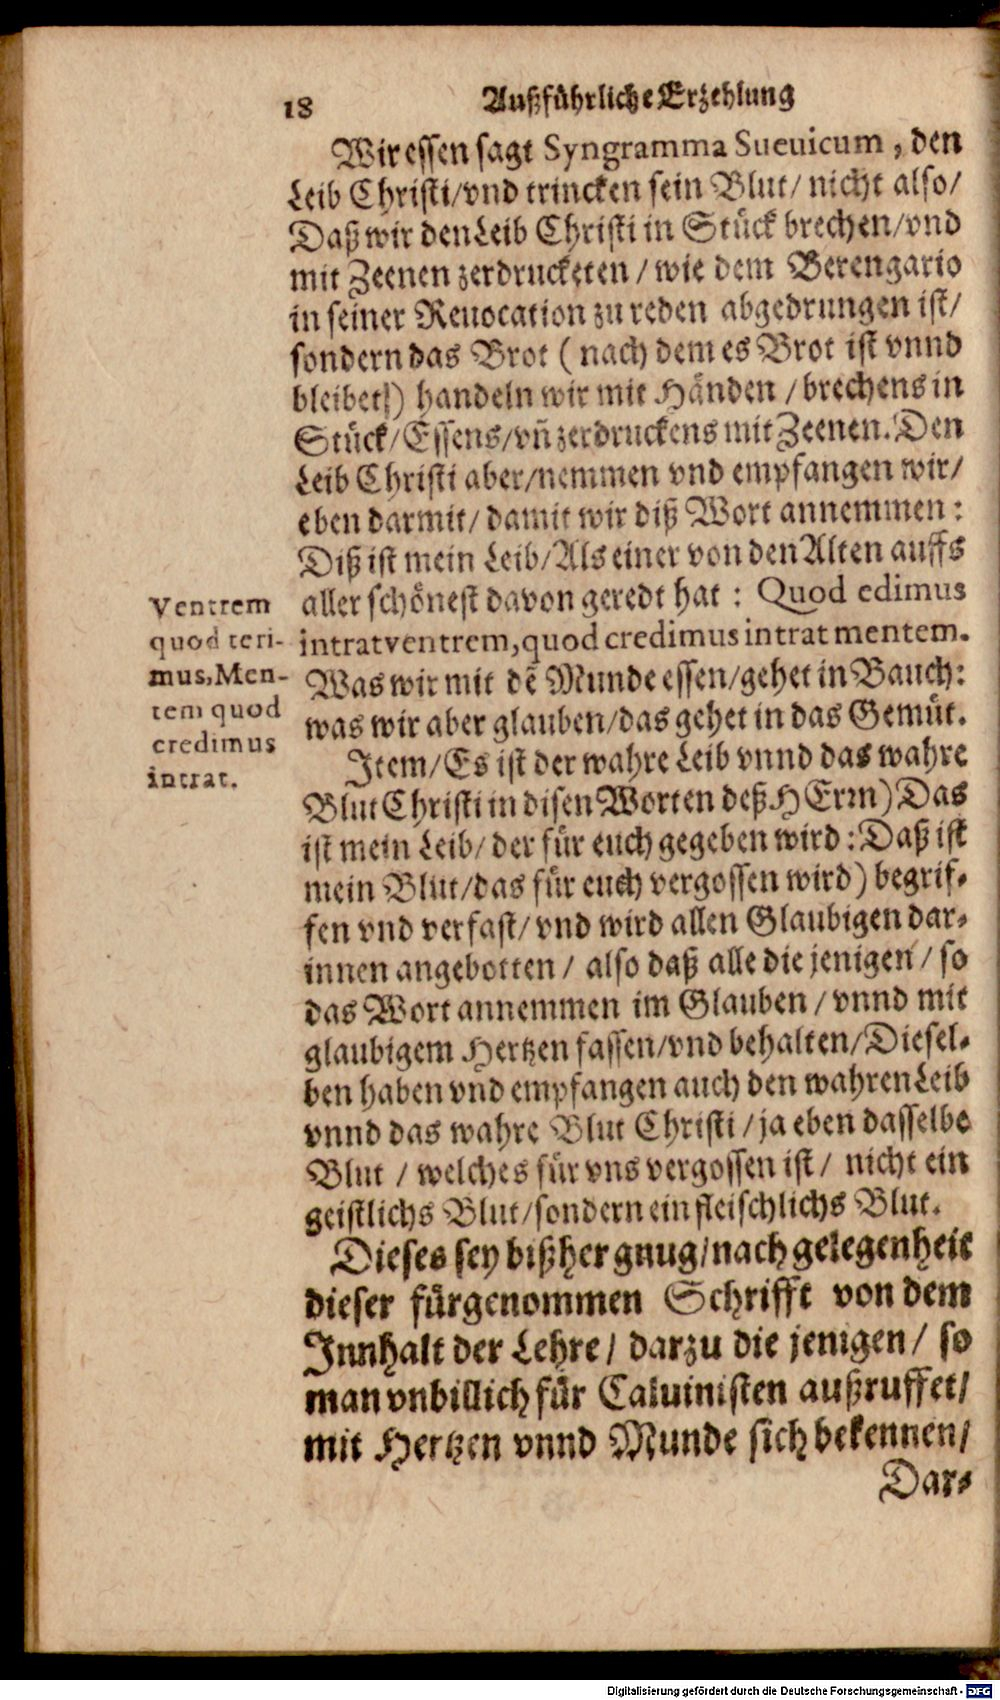 18 Außführliche Erzehlung
Wir essen sagt Syngramma Sueuicum, den
Leib Christi/vnd trincken sein Blut/ nicht also/
Daß wir den Leib Christi in Stück brechen/vnd
mit Zeenen zerdrucketen / wie dem Berengario
in seiner Reuocation zu reden abgedrungen ist/
sondern das Brot ( nach dem es Brot ist vnnd
bleibet) handeln wir mit Händen / brechens in
Stück/Essens/vn̄ zerdruckens mit Zeenen. Den
Leib Christi aber/nemmen vnd empfangen wir/
eben darmit/ damit wir diß Wort annemmen:
Diß ist mein Leib/Als einer von den Alten auffs
aller schönest davon geredt hat : Quod edimus
intrat ventrem, quod credimus intrat mentem.
Was wir mit dē Munde essen/gehet in Bauch:
was wir aber glauben/das gehet in das Gemüt.
Ventrem
quod teri-
mus, Men-
tem quod
credimus
intrat.
Item/Es ist der wahre Leib vnnd das wahre
Blut Christi in disen Worten deß HErrn) Das
ist mein Leib/ der für euch gegeben wird: Daß ist
mein Blut/das für euch vergossen wird) begrif-
fen vnd verfast/ vnd wird allen Glaubigen dar-
innen angebotten / also daß alle die jenigen / so
das Wort annemmen im Glauben / vnnd mit
glaubigem Hertzen fassen/vnd behalten/Diesel-
ben haben vnd empfangen auch den wahren Leib
vnnd das wahre Blut Christi / ja eben dasselbe
Blut / welches für vns vergossen ist / nicht ein
geistlichs Blut/sondern ein fleischlichs Blut.
Dieses sey bißher gnug/nach gelegenheit
dieser fürgenommen Schrifft von dem
Innhalt der Lehre/ darzu die jenigen / so
man vnbillich für Caluinisten außruffet/
mit Hertzen vnnd Munde sich bekennen/
Dar-
Digitalisierung gefördert durch die Deutsche Forschungsgemeinschaft - DFG